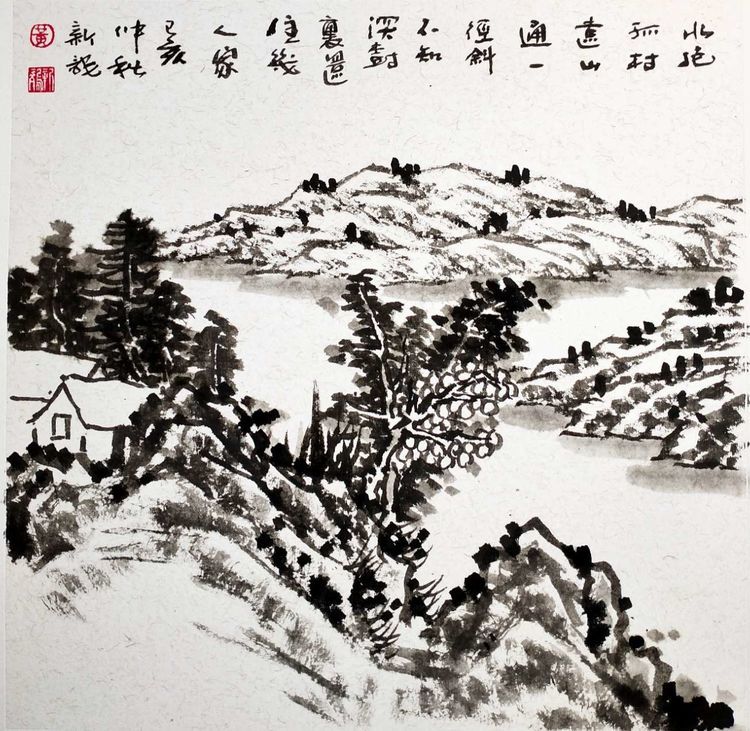 水绕
孤村
遠山
通一
徑斜
不知
深樹
裏還
住幾
人家
己亥
仲秋
新
黃